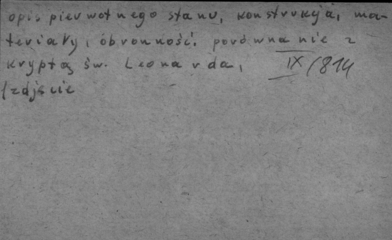 opis pierwotnego stanu, konstrukcja, ma-
teriały, obronność, porównanie z
kryptą św. Leonarda, IX/814
/zdjęcie